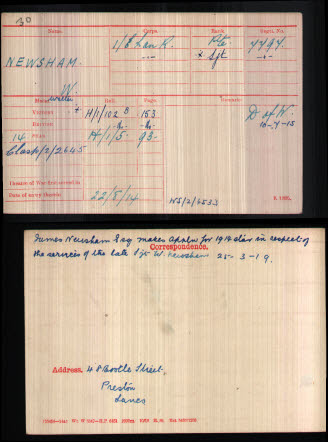 30
Name. Corps. Rank. Regtl. No.
NEWSHAM. 1/L Lan R. Pte. 7797.
W. Sjt
Walter
Medal. Roll. Page. Remarks.
VICTORY H/1/102 B 153 D of W.
BRITISH - do - - do - 18-7-15
14 STAR H/1/5. 93.
Clasp/2/2645
Theatre of War first served in
Date of entry therein 22/8/14 NS/2/6533
K 1380.
James Newsham Esq makes Appln for 1914 Star in respect of
Correspondence.
the services of the late Sjt W. Newsham 25-3-19.
Address. 48 Bootle Street,
Preston
Lancs